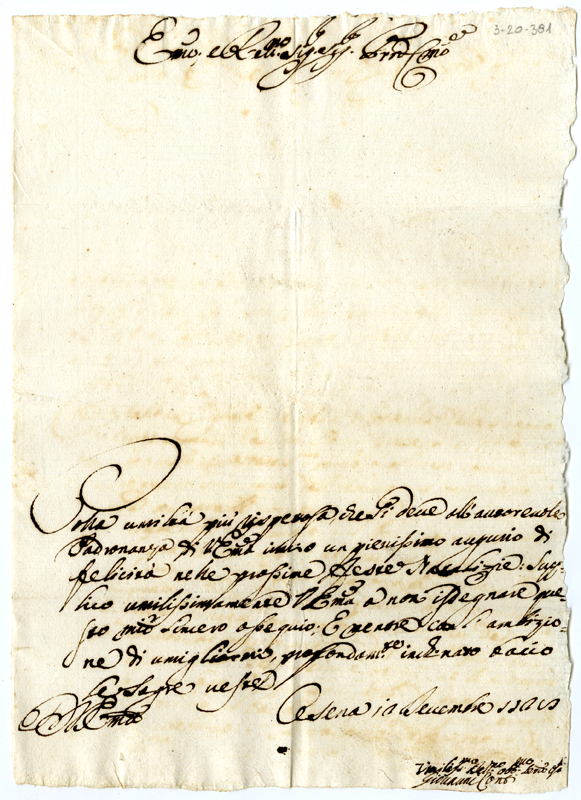 3-20-381
Emo. e Rmo. Sig.e Sig. Pron Cmo
Colla umiltà più rispetosa, che si deve all'autorevole
Padronanza di V. Emza invio un pienissimo augurio di
felicità nelle prossime Feste Natalizie: Sup=
lico umilissimamente V. Emza a non isdegnare que
sto mio sincero ossequio; E mentre con l'ambizio=
ne di umigliarmi, profondam.te inchinato bacio
le Sagre vesti
Di V. Emza
Cesena Decembre
Umiliss.mo
Giovanni